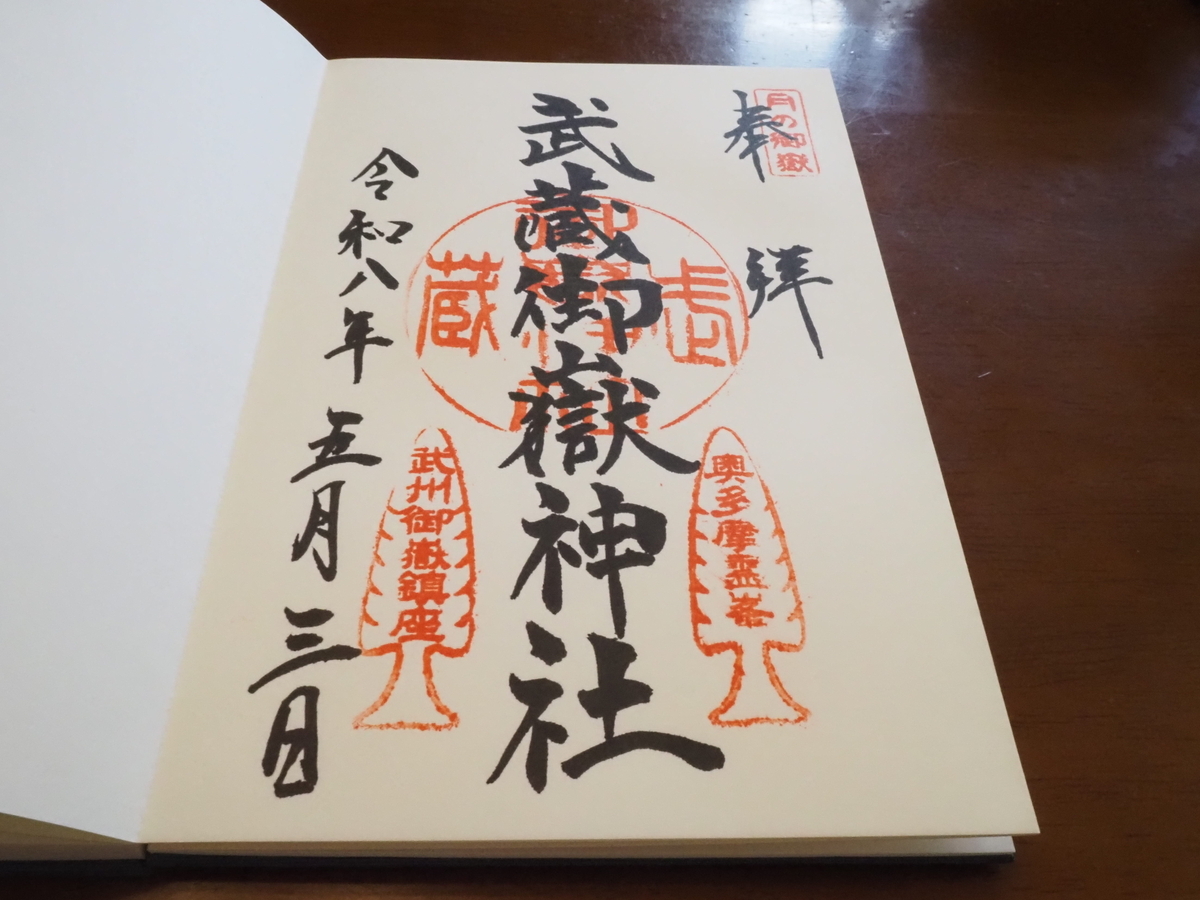 奉拝
月の御嶽
武蔵御嶽神社
武蔵
奥多摩霊峯
武州御嶽鎮座
令和八年五月三日